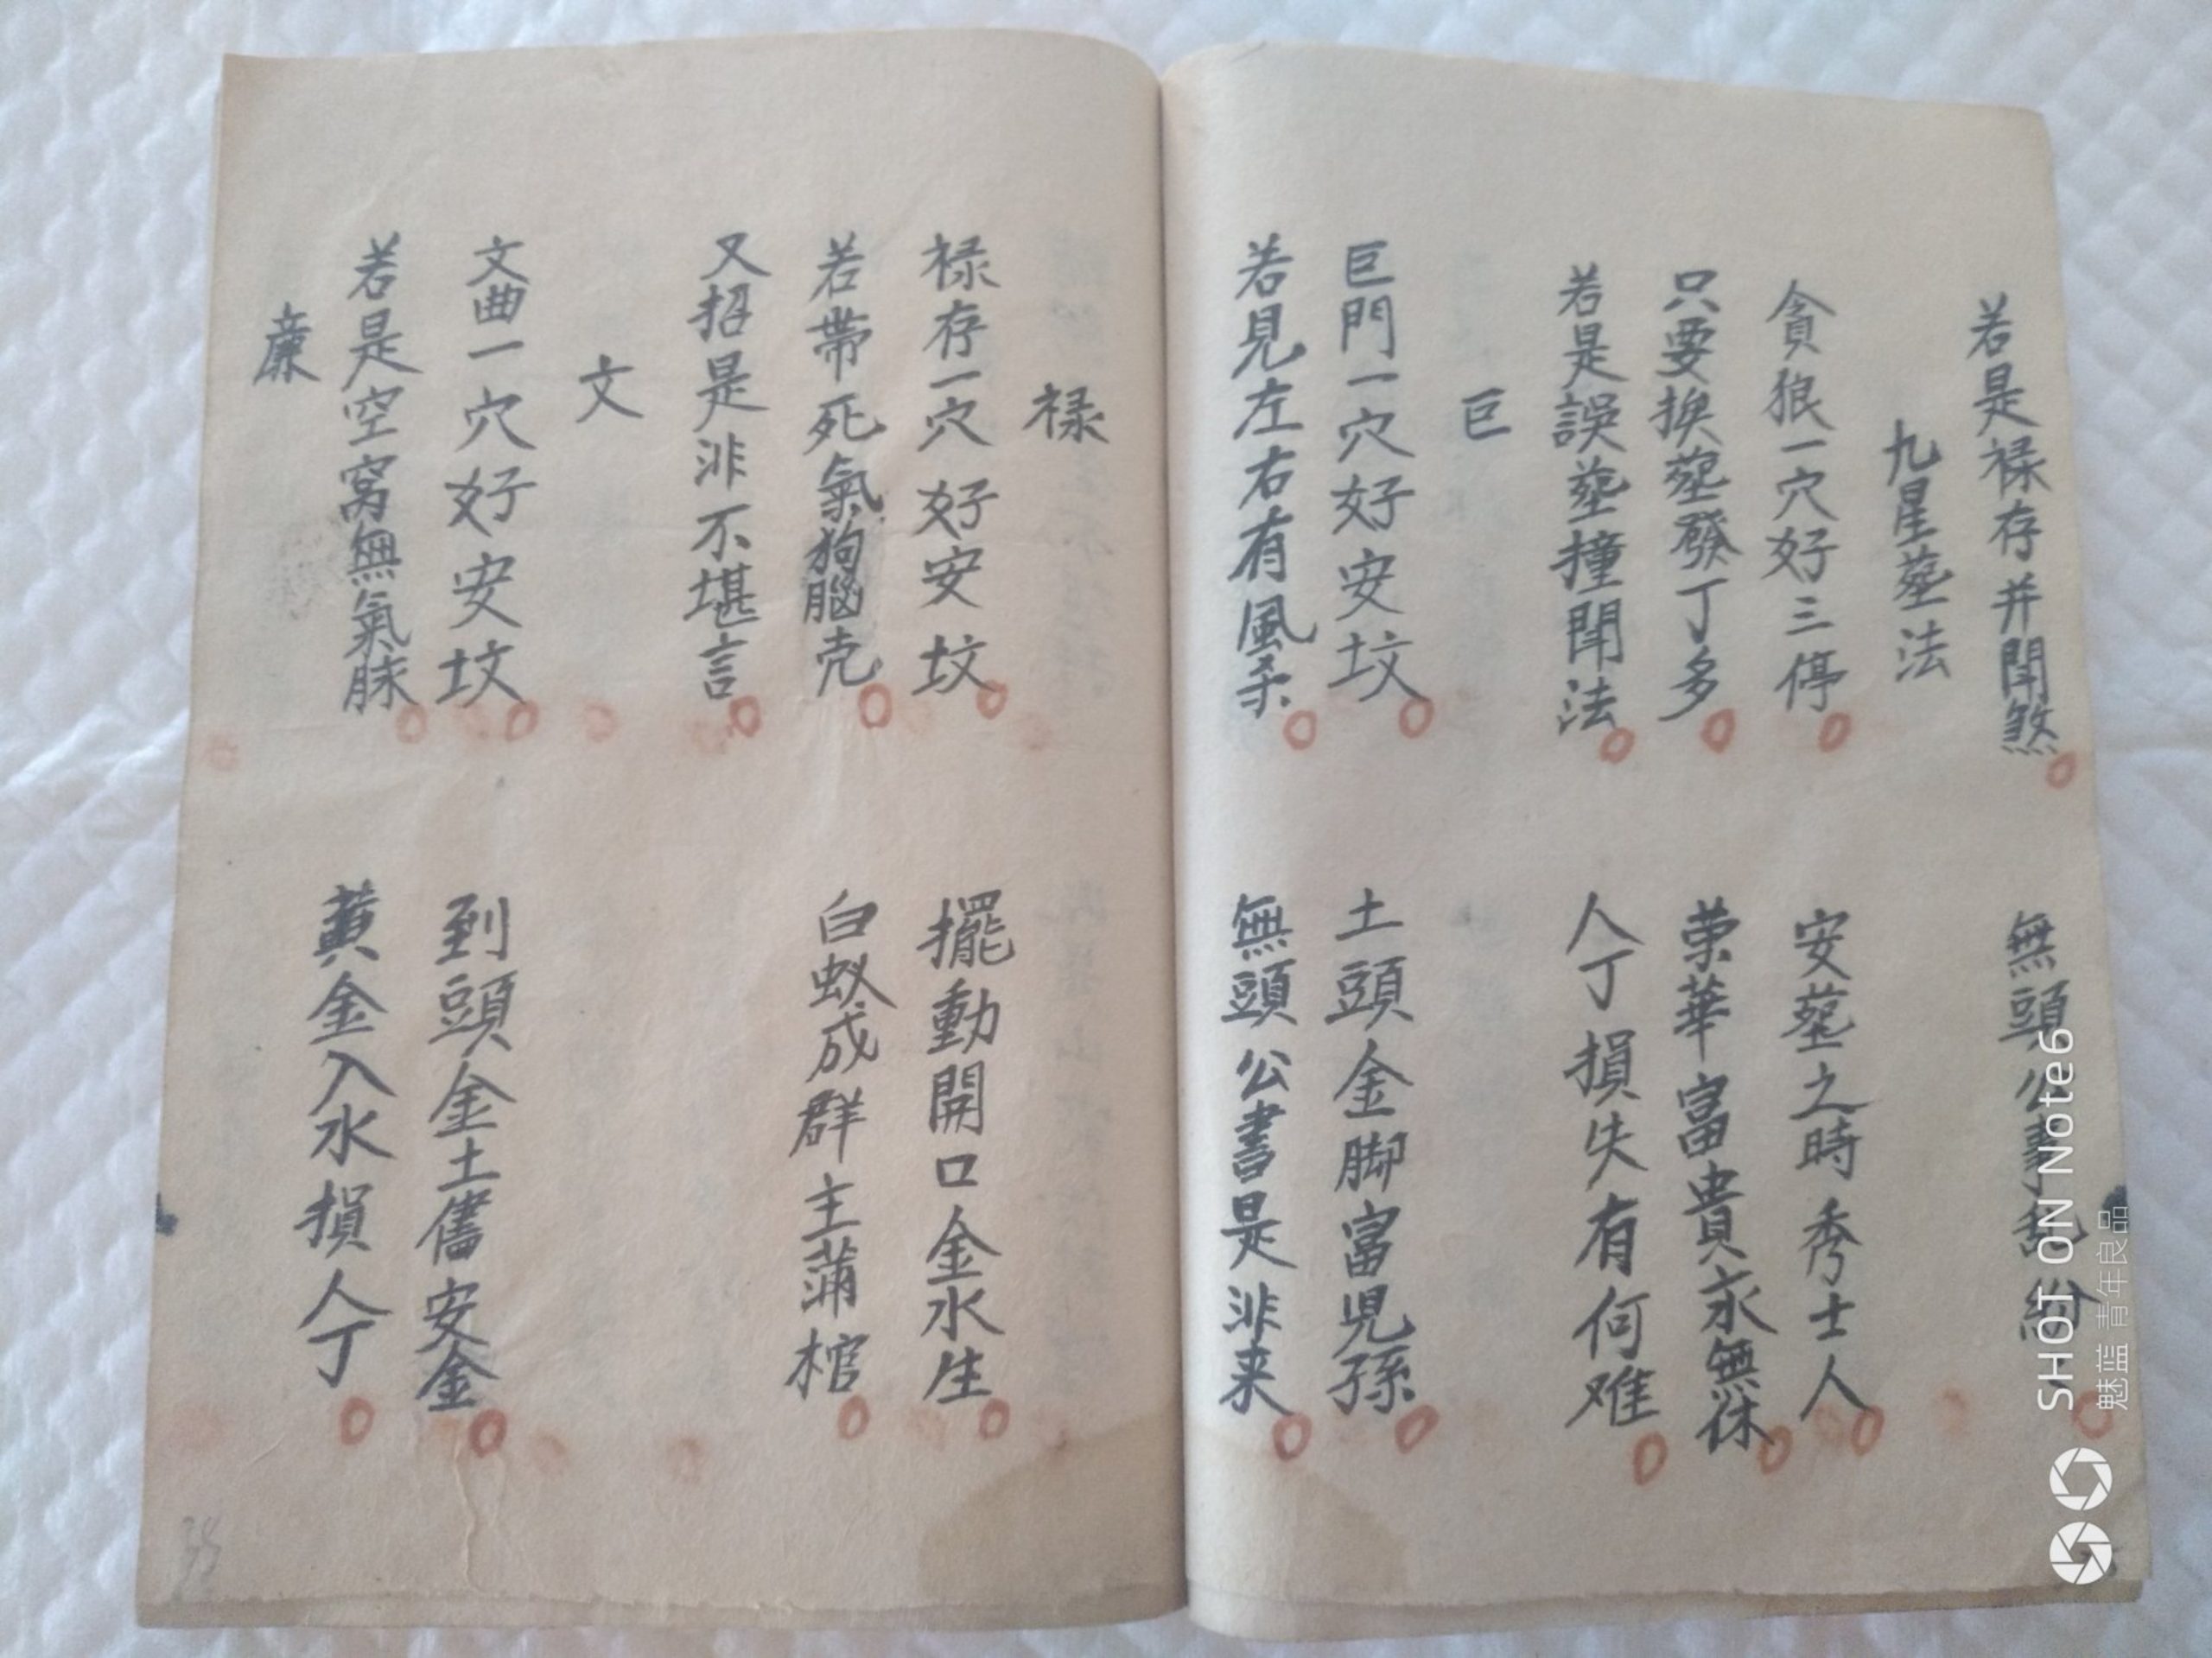 若是禄存并鬧煞 無頭公事乱紛
九星塟法
貪狼一穴好三停 安塟之時秀士人
只要换塟發丁多 荣華富貴永無休
若是誤塟撞鬧法 人丁損失有何难
巨
巨門一穴好安坟 土頭金脚富児孫
若見左右有風杀 無頭公書是非来
禄
禄存一穴好安坟 擺動開口金水生
若帶死氣狗腦壳 白蚁成群主蒲棺
又招是非不堪言
文
文曲一穴好安坟 到頭金土舊安金
若是空窩無氣脉 黄金入水損人丁
廉
35
SHOT ON NOTE6
魅蓝 青年良品